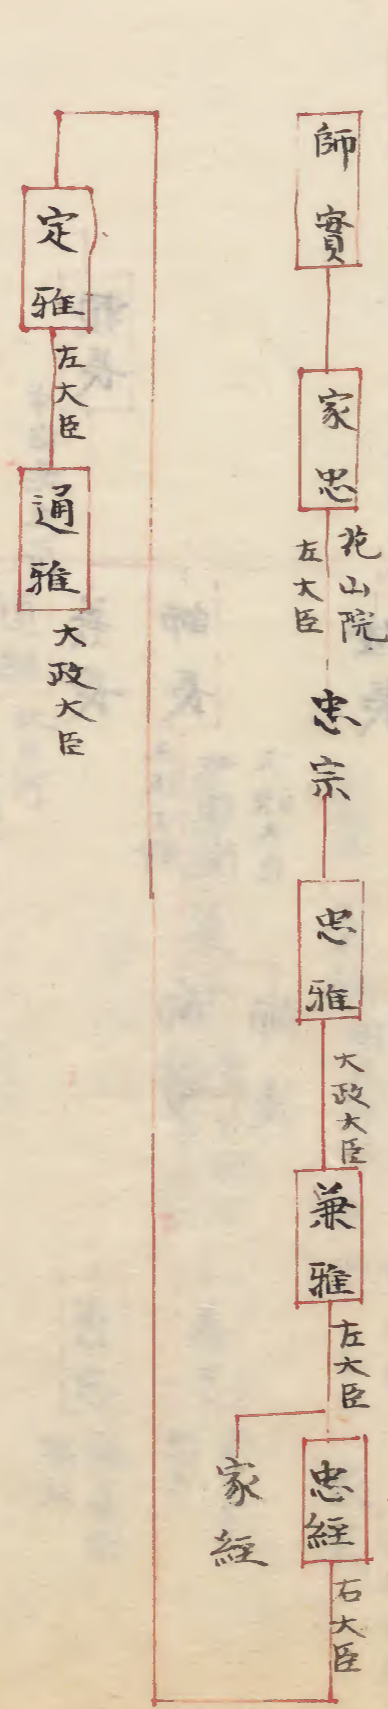 師實
家忠
花山院
左大臣
忠宗
忠雅
大政大臣
兼雅
左大臣
忠經
右大臣
家經
定雅
左大臣
通雅
大政大臣